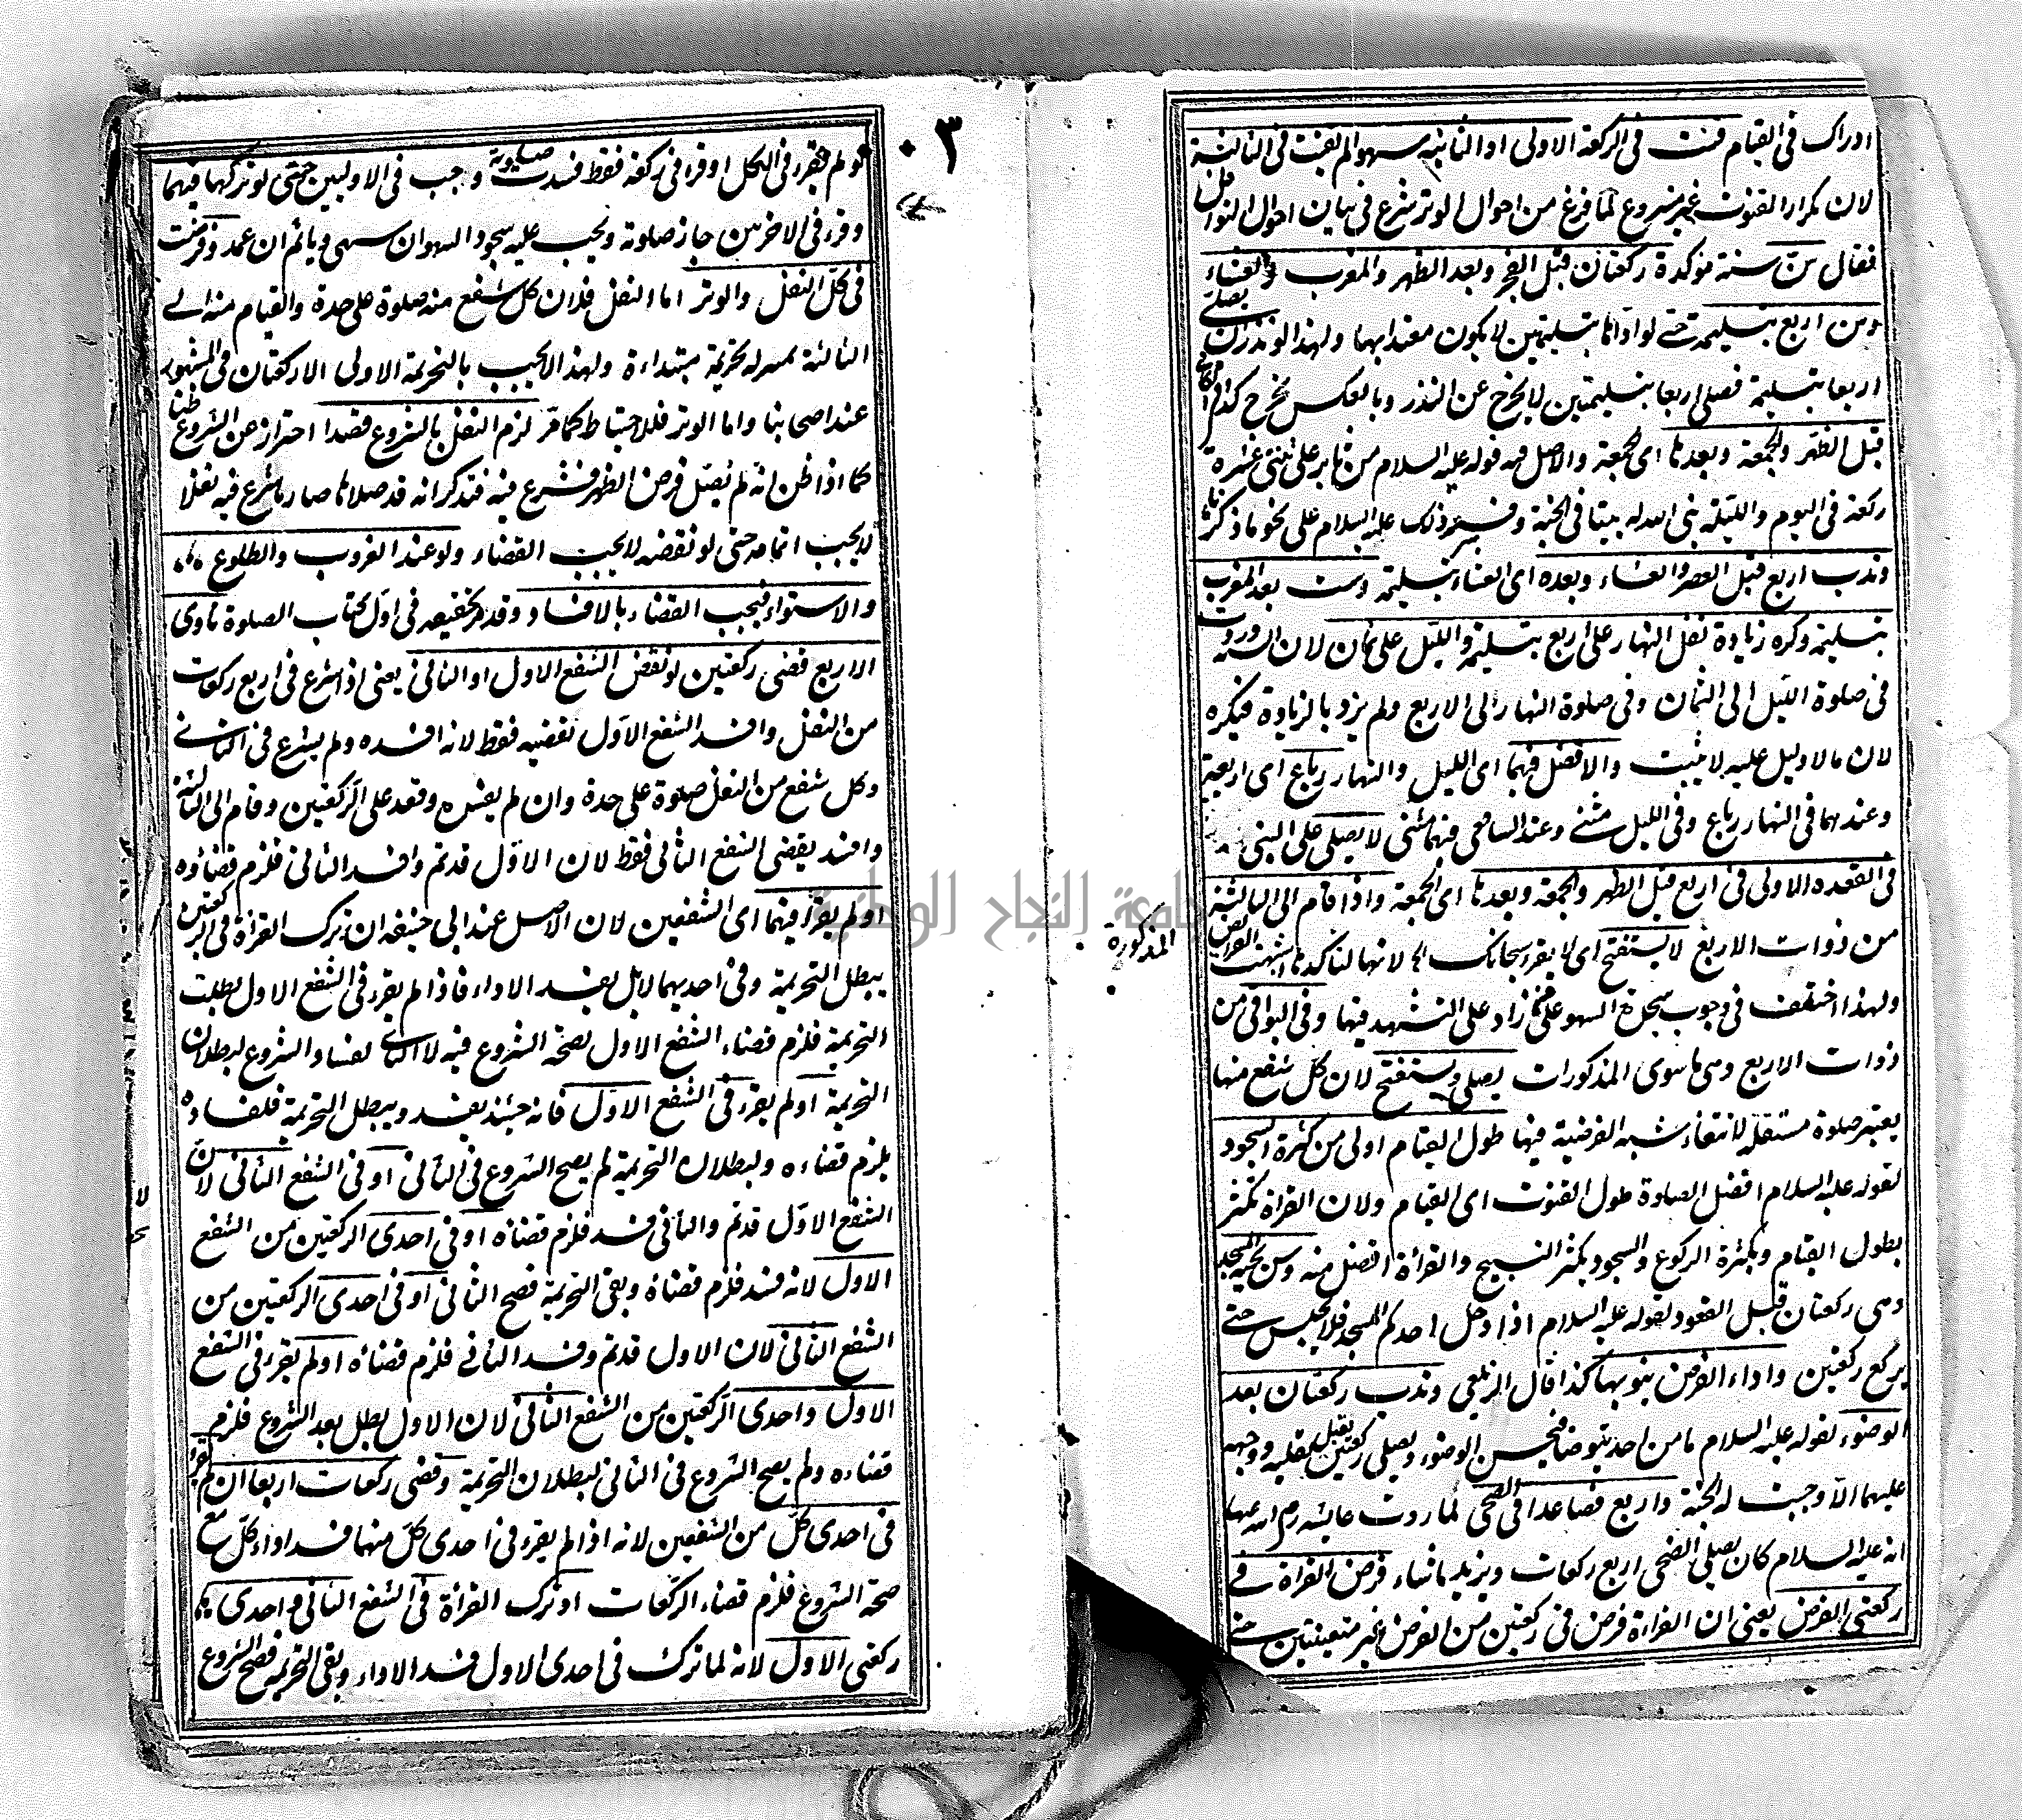 او راكع فى القيام قنت فى الركعة الاولى او الثانية سهوا لم يقنت فى الثالثة
لان تكرار القنوت غير مشروع لما فرغ من احوال الوتر شرع فى بيان احوال النوافل
فقال سن سنة مؤكدة ركعتان قبل الفجر وبعد الظهر والمغرب والعشاء
ومن اربع بتسليمة حتى لو اداها بتسليمتين لا يكون معتدا بها ولهذا لو نذر ان يصلى
اربعا بتسليمة فصلى اربعا بتسليمتين لا يخرج عن النذر وبالعكس يخرج كذا فى الكافى
قبل الظهر والجمعة وبعدها اى الجمعة والاصل فيه قوله عليه السلام من ثابر على ثنتى عشرة
ركعة فى اليوم والليلة بنى الله له بيتا فى الجنة وفسر ذلك عليه السلام على نحو ما ذكرنا
وندب اربع قبل العصر والعشاء وبعده اى العشاء بتسليمة وست بعد المغرب
بتسليمة وكره زيادة نفل النهار على اربع بتسليمة والليل على ثمان لان السنة وردت
فى صلوة الليل الى الثمان وفى صلوة النهار الى الاربع ولم يزد بالزيادة فيكره
لان مالا دليل عليه لا يثبت والافضل فيهما اى الليل والنهار رباع اى اربعة
وعندهما فى النهار رباع وفى الليل مثنى وعند الشافعى فيهما مثنى لا يصلى على النبى
فى القعدة الاولى فى اربع قبل الظهر والجمعة وبعدها اى الجمعة واذا قام الى الثالثة
المذكورة
من ذوات الاربع لا يستفتح اى لا يقرء سبحانك الخ لانها لتاكدها اشبهت الفرائض
ولهذا اختلف فى وجوب سجدة السهو على من زاد على التشهد فيها وفى البواقى من
ذوات الاربع وهى ما سوى المذكورات يصلى ويستفتح لان كل شفع منها
يعتبر صلوة مستقلة لانتفاء شبه الفرضية فيها طول القيام اولى من كثرة السجود
لقوله عليه السلام افضل الصلوة طول القنوت اى القيام ولان القراءة تكثر
بطول القيام وبكثرة الركوع والسجود يكثر التسبيح والقراءة افضل منه وسن تحية المسجد
وهى ركعتان قبل القعود لقوله عليه السلام اذا دخل احدكم المسجد فلا يجلس حتى
يركع ركعتين واداء الفرض ينوبها كذا قال الزيلعى وندب ركعتان بعد
الوضوء لقوله عليه السلام ما من احد يتوضأ فيحسن الوضوء ويصلى ركعتين يقبل بقلبه ووجهه
عليهما الا وجبت له الجنة واربع فصاعدا فى الضحى لما روت عايشه رض الله عنها
انه عليه السلام كان يصلى الضحى اربع ركعات ويزيد ما شاء فرض القراءة فى
ركعتى الفرض يعنى ان القراءة فرض فى ركعتين من الفرض غير متعينتين حتى
٣٠
لو لم يقرء فى الكل او قرء فى ركعة فقط فسدت صلوته وجب فى الاوليين حتى لو تركها فيهما
وقرء فى الاخريين جاز صلوته ويجب عليه سجود السهو ان سهى ويأثم ان عمد وفرضت
فى كل النفل والوتر اما النفل فلان كل شفع منه صلوة على حدة والقيام منه الى
الثالثة بمنزلة تحريمة مبتداءة ولهذا لا يجب بالتحريمة الاولى الا ركعتان فى المشهور
عند اصحابنا واما الوتر فللاحتياط كما مر لزم النفل بالشروع قصدا احتراز عن الشروع ظنا
كما اذا ظن انه لم يصل فرض الظهر فشرع فيه فتذكر انه قد صلاها صار ما شرع فيه نفلا
لا يجب اتمامه حتى لو نقضه لا يجب القضاء ولو عند الغروب والطلوع
والاستواء فيجب القضاء بالافساد وقد مر تحقيقه فى اول كتاب الصلوة ناوى
الاربع قضى ركعتين لو نقض الشفع الاول او الثانى يعنى اذا شرع فى اربع ركعات
من النفل وافسد الشفع الاول يقضيه فقط لانه افسده ولم يشرع فى الثانى
وكل شفع من النفل صلوة على حدة وان لم يفسده وقعد على الركعتين وقام الى الثالثة
وافسد يقضى الشفع الثانى فقط لان الاول قد تم وافسد الثانى فلزم قضاؤه
او لم يقرأ فيهما اى الشفعين لان الاصل عند ابى حنيفه ان ترك القراة فى الركعتين
يبطل التحريمة وفى احديهما لا بل يفسد الاداء فاذا لم يقرء فى الشفع الاول بطلت
التحريمة فلزم قضاء الشفع الاول لصحة الشروع فيه لا الثانى لفساد الشروع لبطلان
التحريمة او لم يقرء فى الشفع الاول فانه حينئذ يفسد ويبطل التحريمة فلفساده
يلزم قضاءه ولبطلان التحريمة لم يصح الشروع فى الثانى او فى الشفع الثانى لان
الشفع الاول قد تم والثانى فسد فلزم قضائه او فى احدى الركعتين من الشفع
الاول لانه فسد فلزم قضائه وبقى التحريمة فصح الثانى او فى احدى الركعتين من
الشفع الثانى لان الاول قد تم وفسد الثانى فلزم قضائه او لم يقرء فى الشفع
الاول واحدى الركعتين من الشفع الثانى لان الاول بطل بعد الشروع فلزم
قضاءه ولم يصح الشروع فى الثانى لبطلان التحريمة وقضى ركعات اربعا ان لم يقرأ
فى احدى كل من الشفعين لانه اذا لم يقرء فى احدى كل منهما فسد اداء كل مع
صحة الشروع فلزم قضاء الركعات او ترك القراءة فى الشفع الثانى واحدى
ركعتى الاول لانه لما ترك فى احدى الاول فسد الاداء وبقى التحريمة فصح الشروع
جامعة النجاح الوطنية